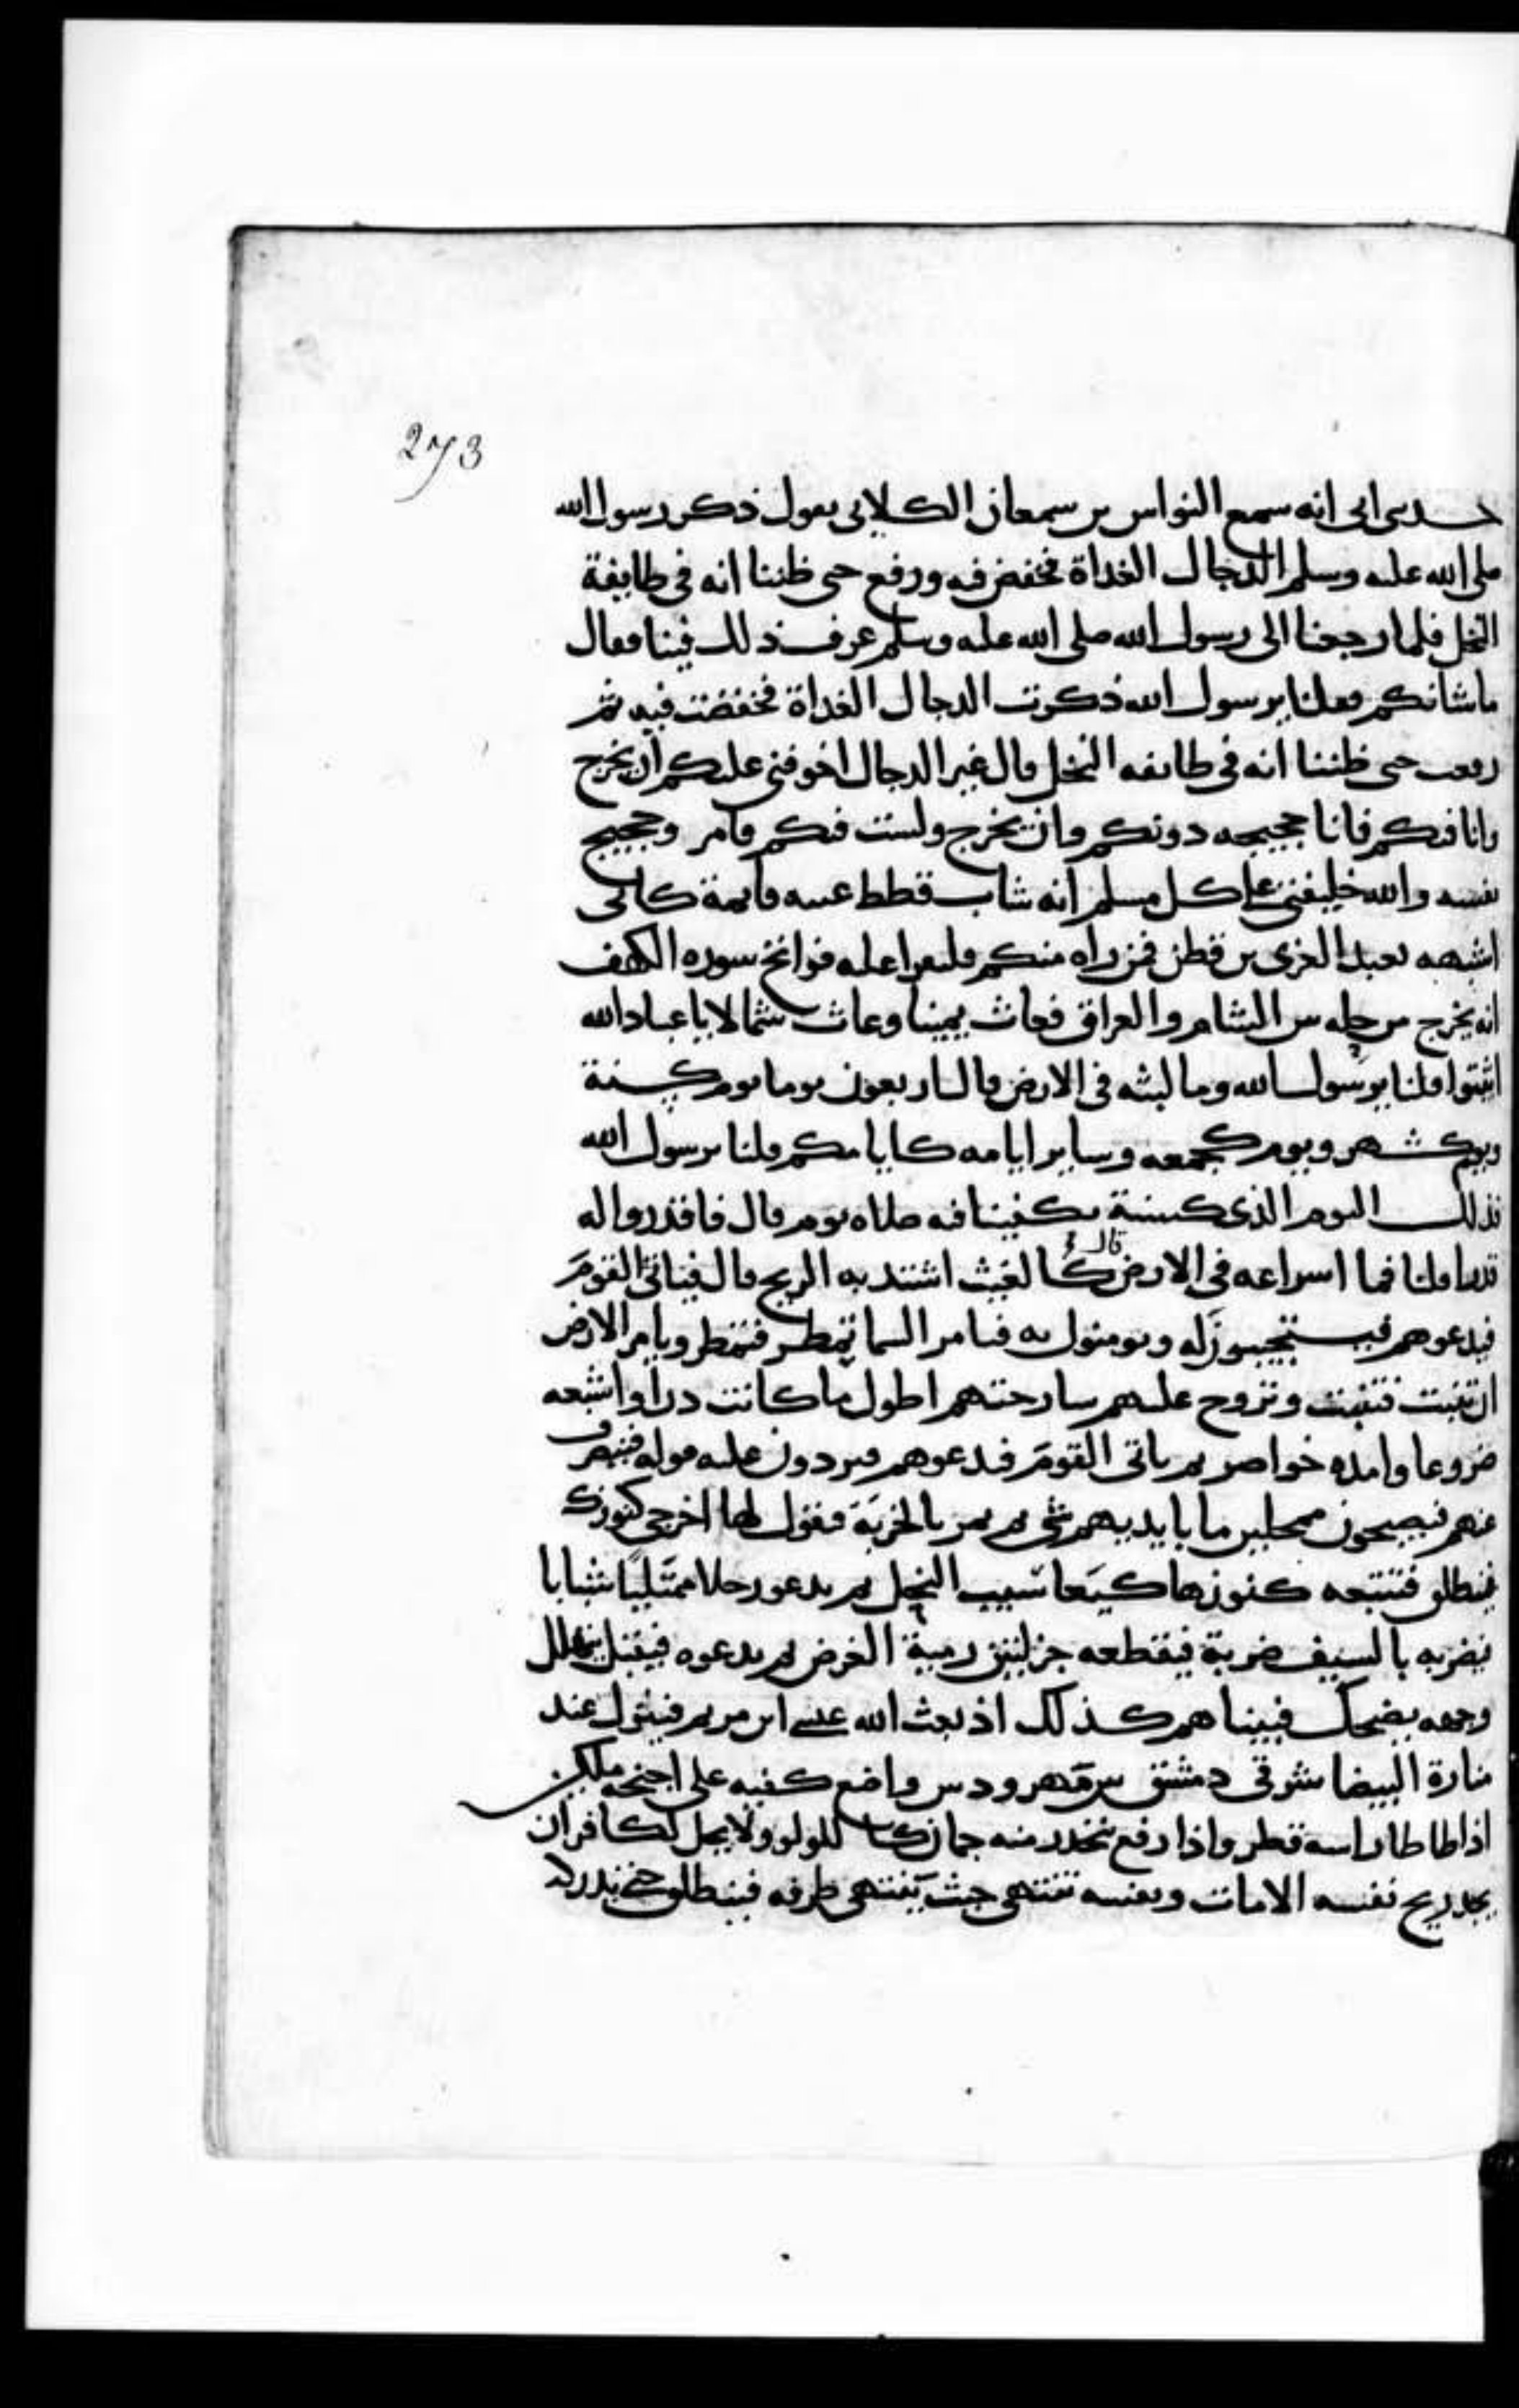 273
حدثنى ابى انه سمع النواس بن سمعان الكلابى يقول ذكر رسول الله
صلى الله عليه وسلم الدجال الغداة فخفض فيه ورفع حتى ظننا انه فى طايفة
النخل فلما رجعنا الى رسول الله صلى الله عليه وسلم عرف ذلك فينا فقال
ما شانكم فقلنا يرسول الله ذكرت الدجال الغداة فخفضت فيه ثم
رفعت حتى ظننا انه فى طايفه النخل قال غير الدجال اخوفنى عليكم ان يخرج
وانا فيكم فانا حجيجه دونكم وان يخرج ولست فيكم فامر وحجيج
نفسه والله خليفتى على كل مسلم انه شاب قطط عينه قايمة كانى
اشبهه بعبد العزى بن قطن فمن راه منكم فليقرا عليه فواتح سوره الكهف
انه يخرج من حله بين الشام والعراق فعاث يمينا وعاث شمالا يا عباد الله
اثبتوا قلنا يرسول الله وما لبثه فى الارض قال اربعون يوما يوم كسنة
ويوم كشهر ويوم كجمعه وساير ايامه كايامكم قلنا يرسول الله
فذلك اليوم الذى كسنة يكفينا فيه صلاه يوم قال فاقدروا له
قدرا قلنا فما اسراعه فى الارض قال كالغيث اشتد به الريح قال فياتى القوم
فيدعوهم فيستجيبون له ويومنون به فيامر السما تمطر فتمطر ويامر الارض
ان تنبت فتنبت وتروح عليهم سارحتهم اطول ما كانت درا واشبعه
ضروعا وامده خواصر ثم ياتى القوم فيدعوهم فيردون عليه قوله فينصرف
عنهم فيصبحون ممحلين ما بايديهم شى ثم يمر بالخربة فيقول لها اخرجى كنوزك
فينطلق فتتبعه كنوزها كيعاسيب النحل ثم يدعو رجلا ممتليا شبابا
فيضربه بالسيف ضربة فيقطعه جزلتين رمية الغرض ثم يدعوه فيقبل يتهلل
وجهه يضحك فبينا هم كذلك اذ بعث الله عيسى ابن مريم فينزل عند
منارة البيضا شرقى دمشق بين مهرودتين واضع كفيه على اجنحه ملكين
اذا طاطا راسه قطر واذا رفع تحدر منه جمان كاللولو ولا يحل لكافر ان
يجد ريح نفسه الا مات ونفسه تنتهى حيث ينتهى طرفه فينطلق حتى يدركه